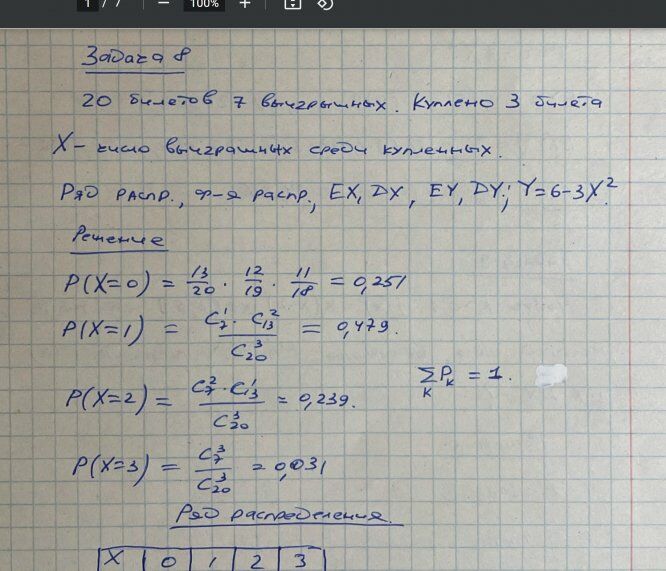 1 / 7 — 100% +
Задача 8
20 билетов 7 выигрышных. Куплено 3 билета
X – число выиграшных среди купленных.
Ряд распр., ф-я распр., EX, DX, EY, DY; Y = 6 – 3X².
Решение
P(X=0) = 13/20 · 12/19 · 11/18 = 0,251
P(X=1) = C₇¹ · C₁₃² / C₂₀³ = 0,479.
P(X=2) = C₇² · C₁₃¹ / C₂₀³ = 0,239.
∑ₖ Pₖ = 1.
P(X=3) = C₇³ / C₂₀³ = 0,031
Ряд распределения.
X 0 1 2 3